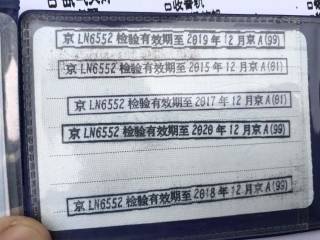 京 LN6552 检验有效期至 2019 年 12 月京 A(99)
京 LN6552 检验有效期至 2015 年 12 月京 A(01)
京 LN6552 检验有效期至 2017 年 12 月京 A(01)
京 LN6552 检验有效期至 2020 年 12 月京 A(99)
京 LN6552 检验有效期至 2018 年 12 月京 A(99)